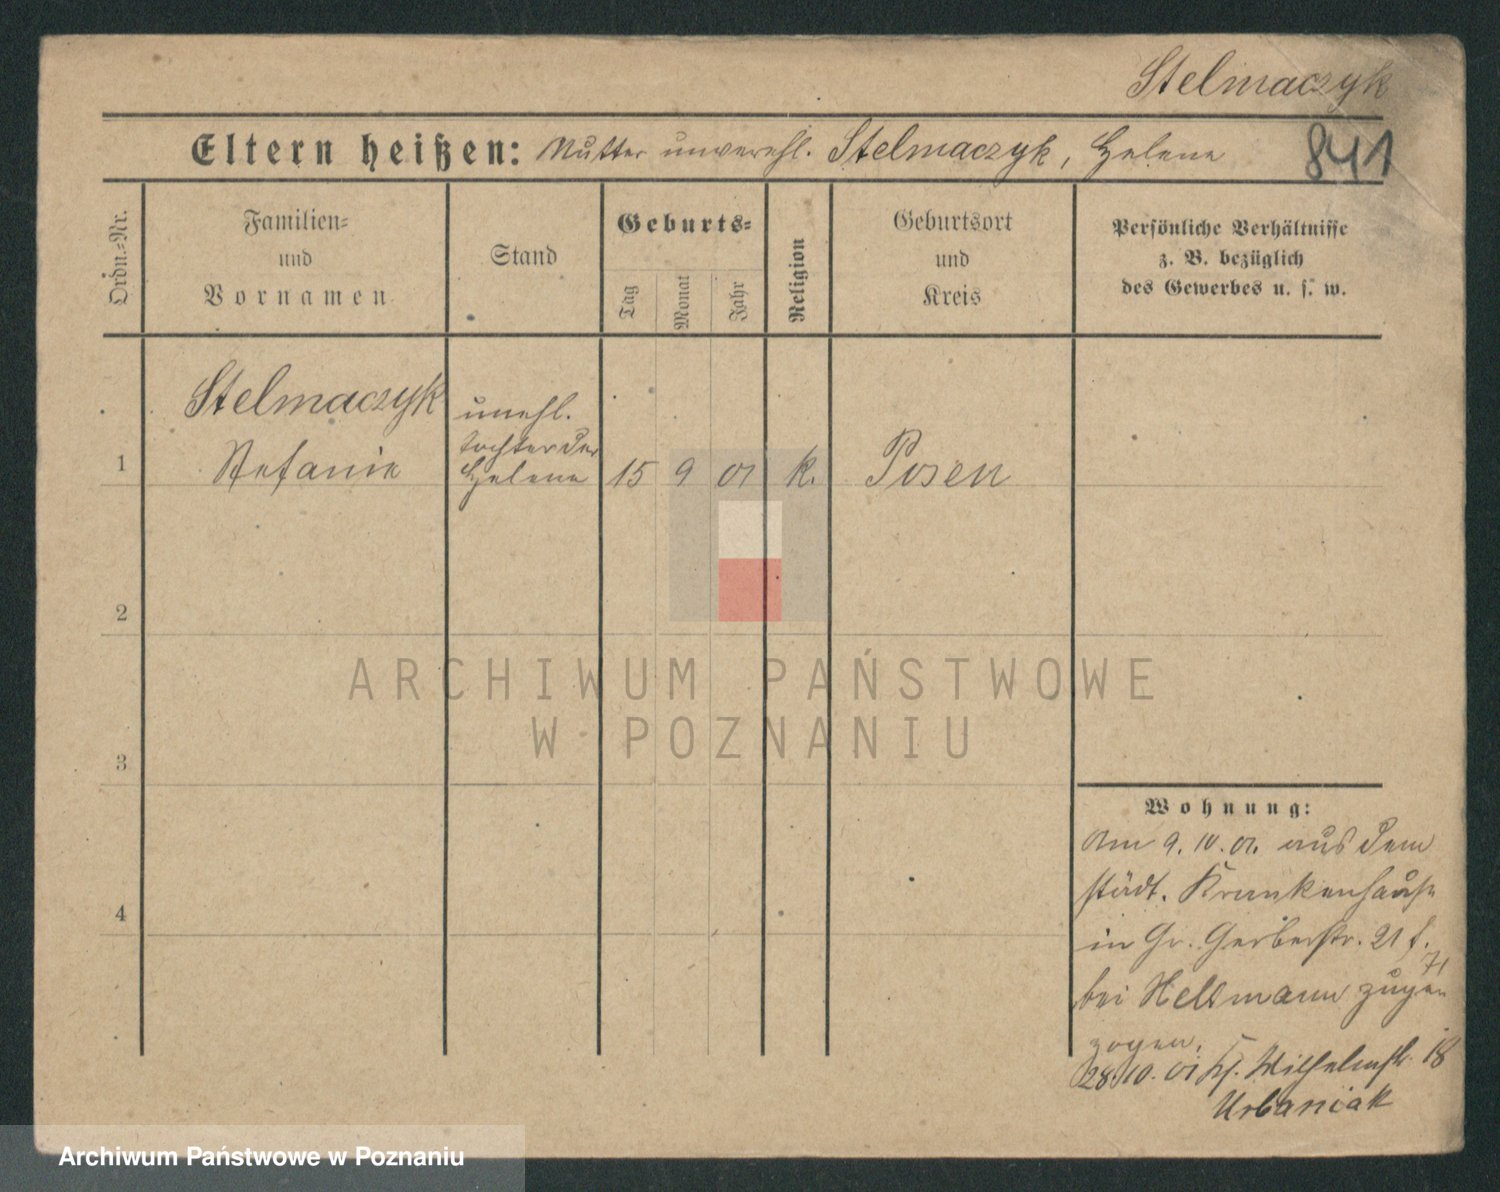 Stelmaczyk
Eltern heißen: Mutter unverehl. Stelmaczyk, Helene
841
Ordn.=Nr.
Familien=
und
Vornamen
Stand
Geburts=
Tag
Monat
Jahr
Religion
Geburtsort
und
Kreis
Persönliche Verhältnisse
z. B. bezüglich
des Gewerbes u. s. w.
Stelmaczyk unehl.
tochter der
1 Stefanie Helene 15 9 01 k. Posen
2
ARCHIWUM PAŃSTWOWE
W POZNANIU
3
Wohnung:
Am 9. 10. 01. aus dem
städt. Krankenhause
4
in Gr. Gerberstr. 21
bei Hellmann zuge
zogen.
28. 10. 01 Wilhelmstr. 18
Urbaniak
Archiwum Państwowe w Poznaniu